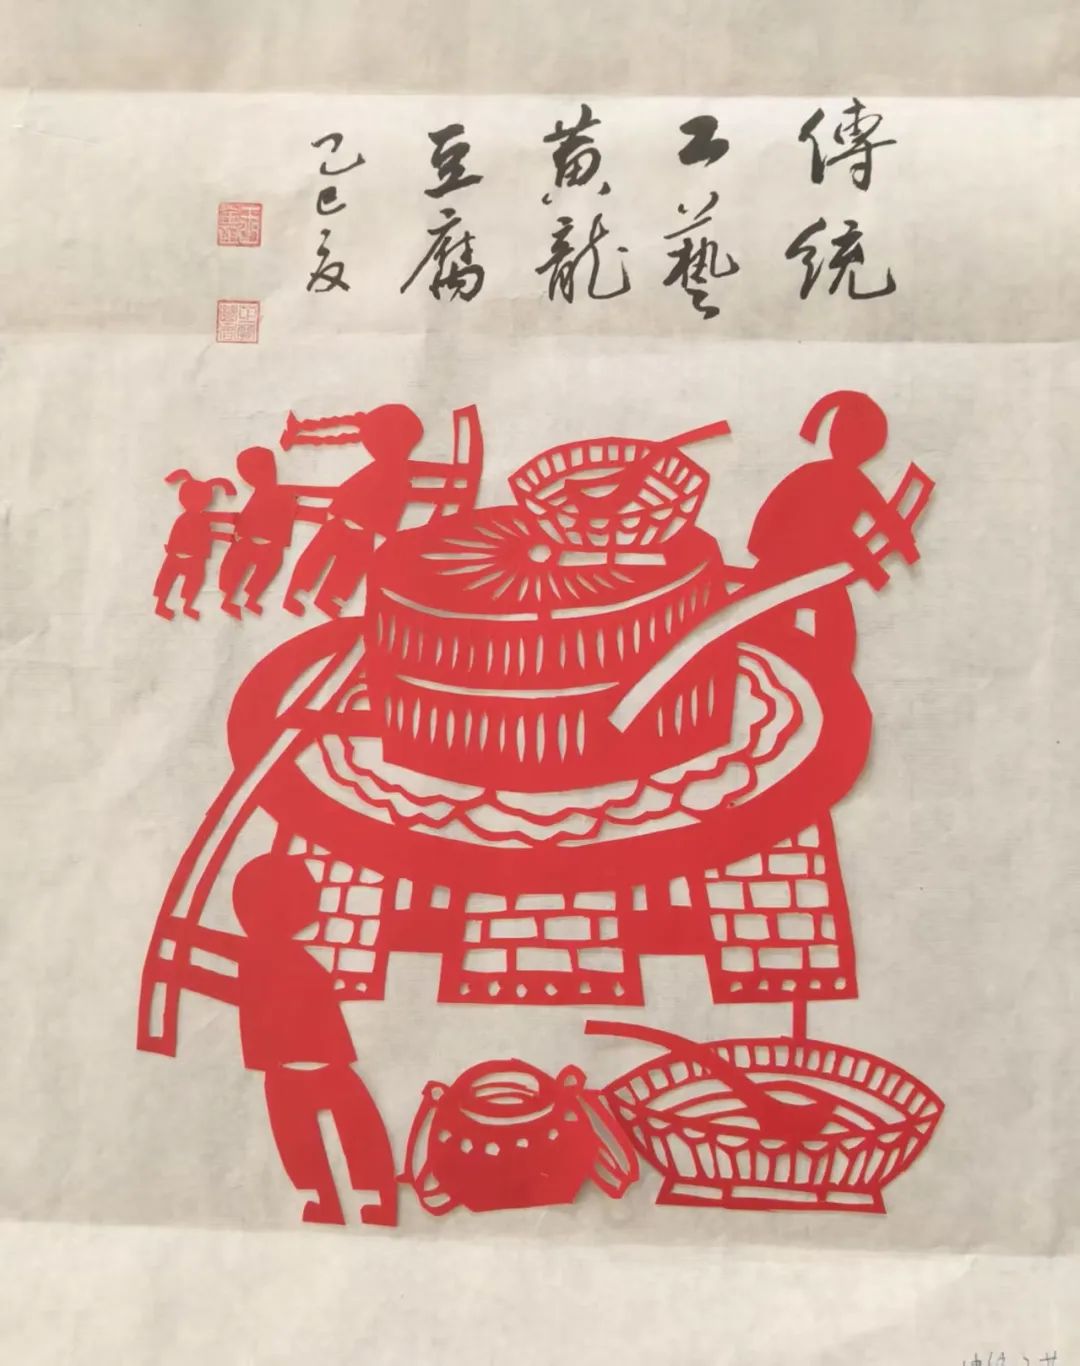 傳統
工藝
黄龍
豆腐
乙巳夏